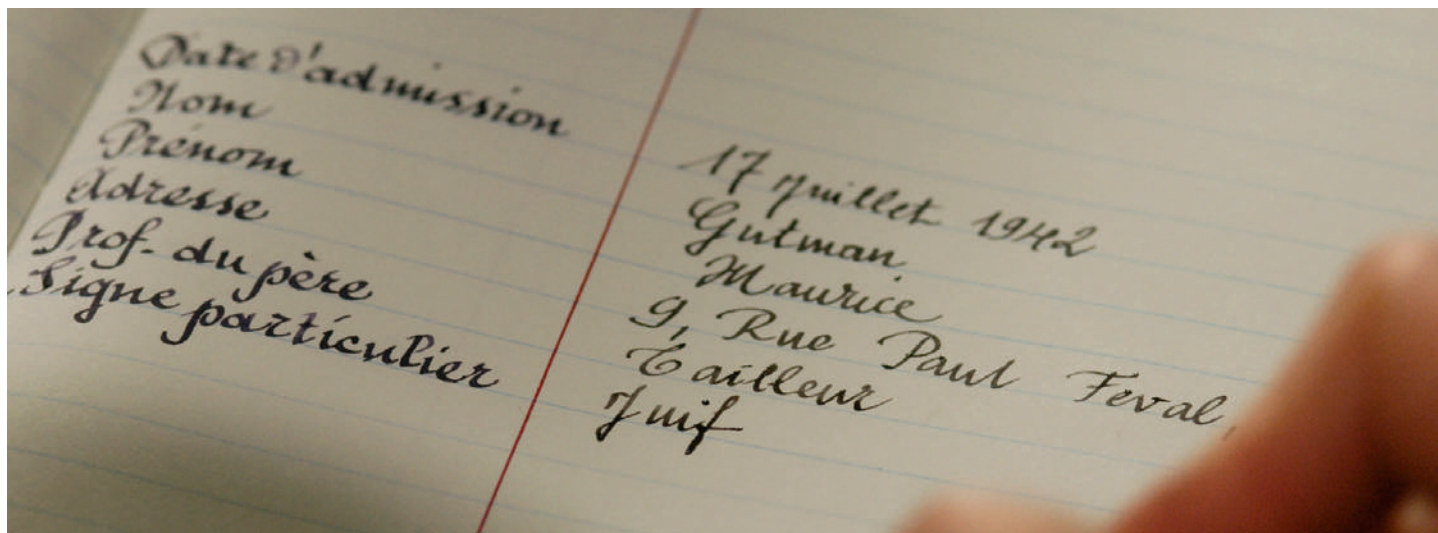 Date d'admission
Nom
Prénom
Adresse
Prof. du père
Signe particulier
17 Juillet 1942
Gutman
Maurice
9, Rue Paul Feval,
Tailleur
Juif